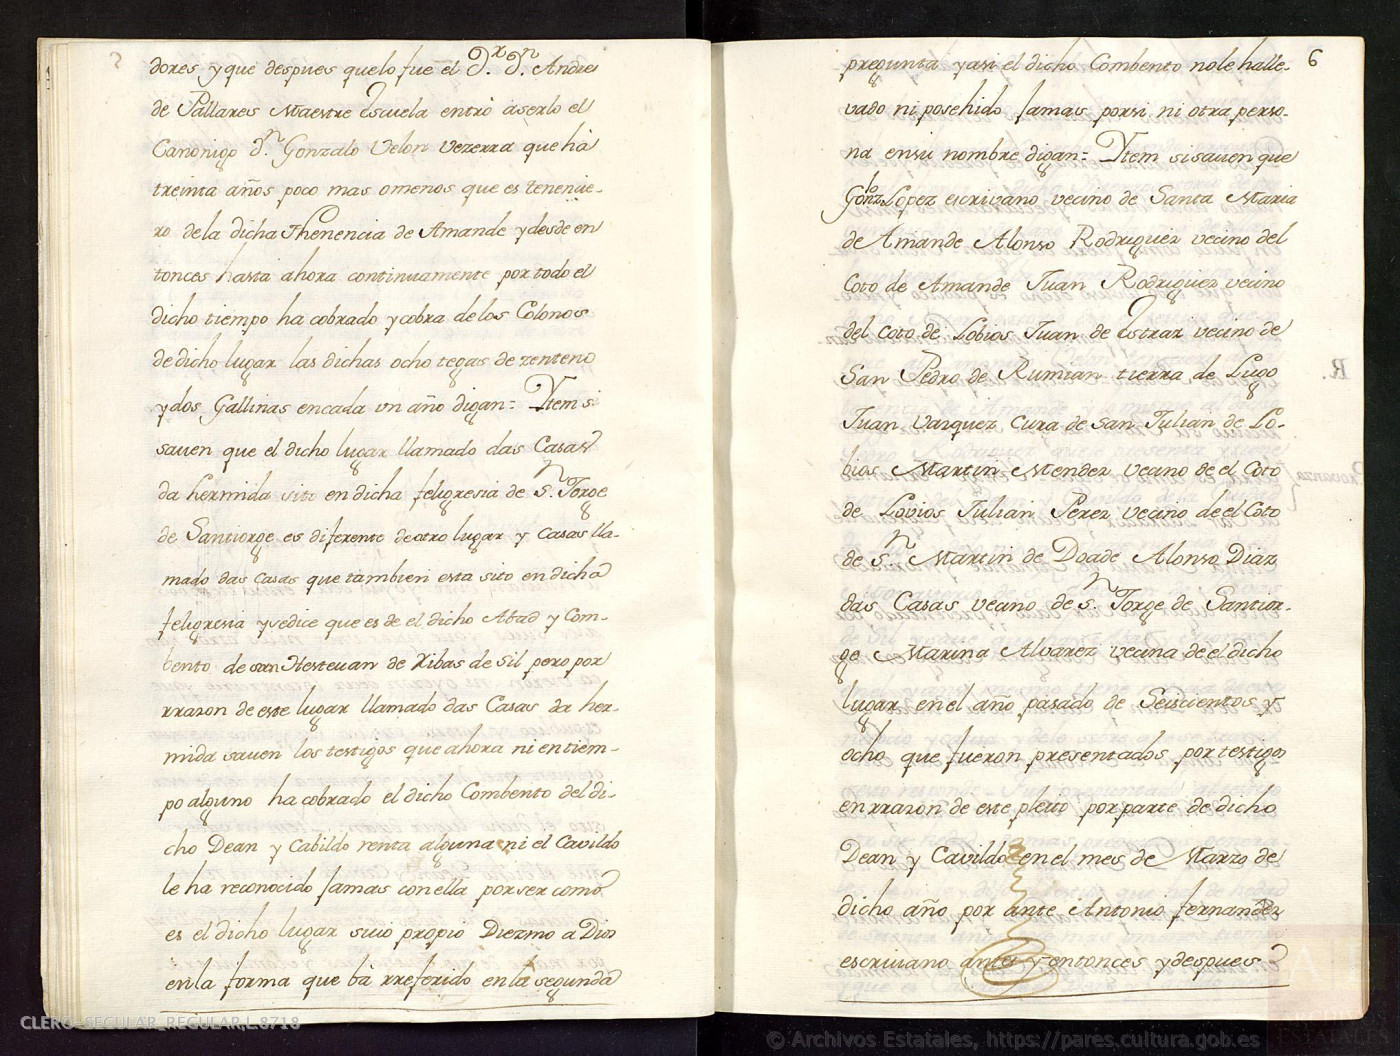 dores y que despues quelo fue el D.r D.n Andres
de Pallares Maestre Escuela entrò àserlo el
Canonigo d.n Gonzalo Velon vezerra que hà
treinta años poco mas omenos que es tenencie-
ro dela dicha Thenencia de Amande y desde en
tonces hasta ahora continuamente por todo el
dicho tiempo ha cobrado y cobra delos Colonos
de dicho lugar las dichas ocho tegas de zenteno
y dos Gallinas encada un año digan= Ytem si
saven que el dicho lugar llamado das Casas
da hermida sito en dicha feligresia de S.n Jorge
de Santiorge es diferente deotro lugar y casas lla-
mado das casas que tambien esta sito en dicha
feligresia y sedice que es de el dicho Abad y Com-
bento de san Hestevan de Ribas de Sil pero por
rrazon de este lugar llamado das Casas da her-
mida saven los testigos que ahora ni en tiem-
po alguno ha cobrado el dicho Combento del di-
cho Dean y Cabildo renta alguna ni el Cavildo
le ha reconocido Jamas con ella por ser como
es el dicho lugar suio propio Diezmo a Dios
en la forma que bà rreferido en la segunda
6
pregunta y asi el dicho Combento no le halle-
vado ni posehido Jamas por si ni otra perso-
na en su nombre digan= Ytem si saven que
Gonz.lo Lopez escrivano vecino de Santa Maria
de Amande Alonso Rodriguez vecino del
Coto de Amande Juan Rodriguez vecino
del Coto de Lobios Juan de Estraz vecino de
San Pedro de Rumian tierra de Lugo
Juan Vazquez Cura de San Julian de Lo-
bios Martin Mendez vecino de el Coto
de Lovios Julian Perez vecino de el Coto
de S.n Martin de Doade Alonso Diaz
das Casas vecino de S.n Jorge de Santior-
ge Marina Alvarez vecina de el dicho
lugar en el año pasado de Seiscientos y
ocho que fueron presentados por testigos
en rrazon de este pleito por parte de dicho
Dean y Cavildo en el mes de Marzo de
dicho año por ante Antonio fernandez
escriviano antes y entonces y despues
CLERO-SECULAR_REGULAR,L.8718
© Archivos Estatales, https://pares.cultura.gob.es